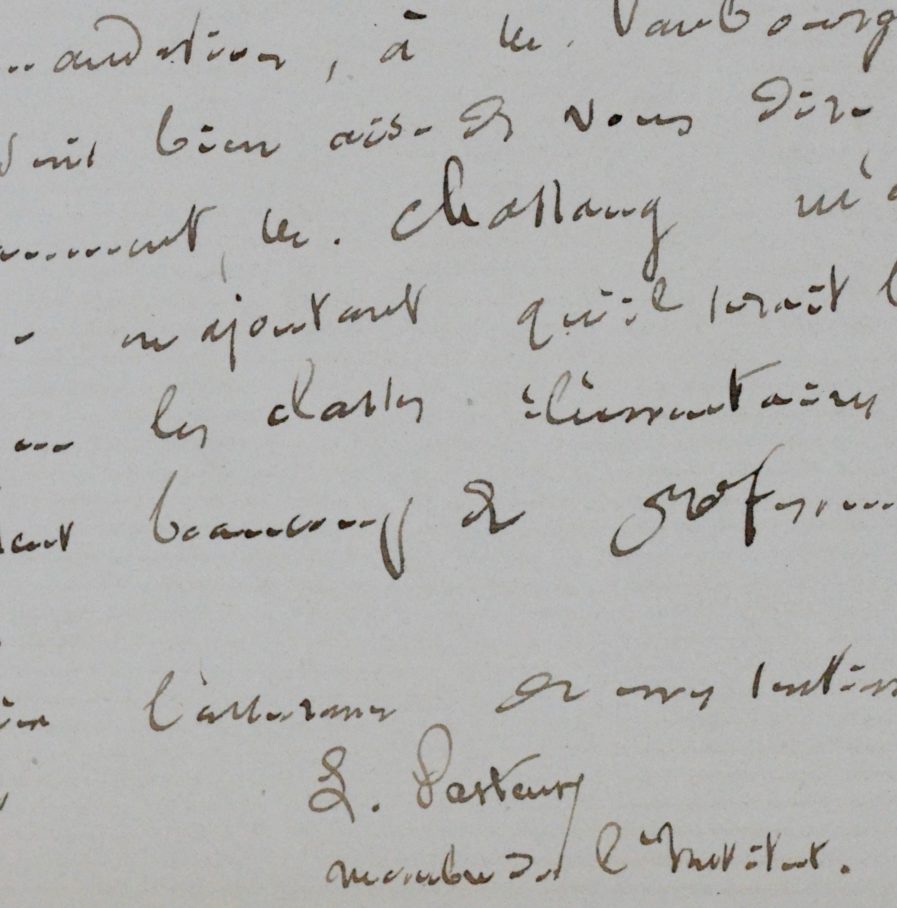 ...andation, à M. Vaubourg
suis bien aise de vous dire
...mment, M. Chassang m'a
en ajoutant qu'il serait
les classes élémentaires
beaucoup de profess...
l'assurance de mes sentim...
L. Pasteur
membre de l'Institut.